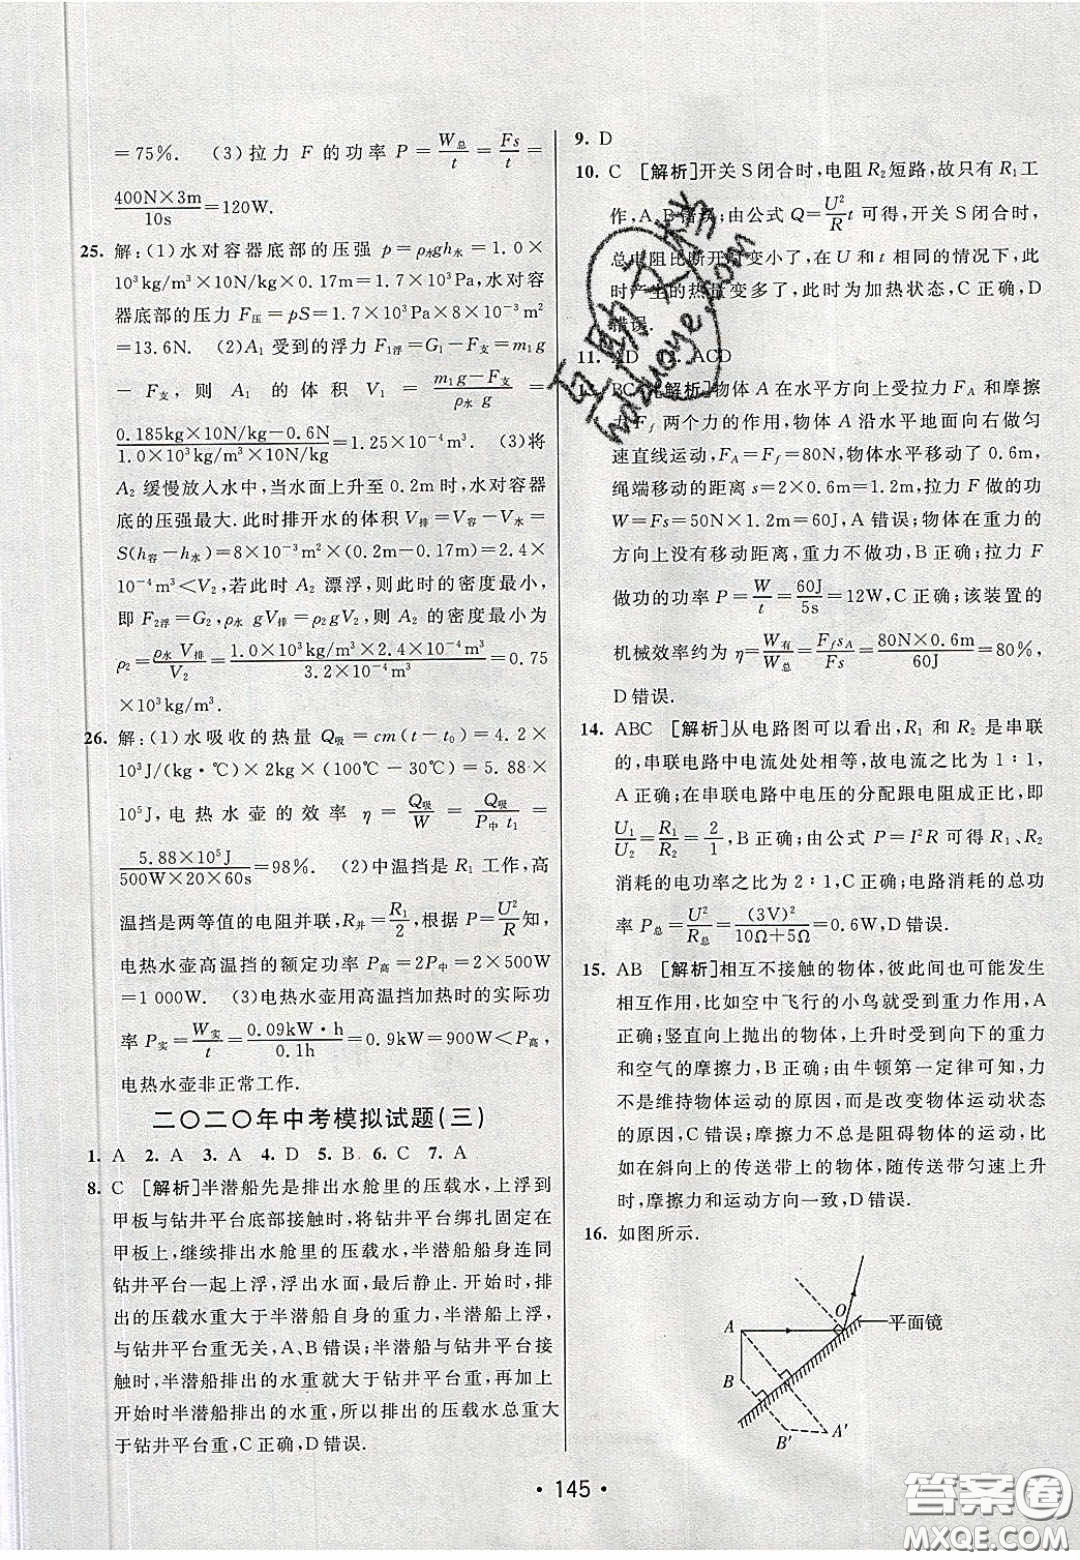 =75%. (3)拉力 F 的功率 P=W总/t=Fs/t=
400N×3m/10s=120W.
25. 解:(1)水对容器底部的压强 p=ρ水gh水=1.0×
10³kg/m³×10N/kg×0.17m=1.7×10³Pa,水对容
器底部的压力 F压=pS=1.7×10³Pa×8×10⁻³m²
=13.6N. (2)A₁ 受到的浮力 F₁浮=G₁-F支=m₁g
-F支,则 A₁ 的体积 V₁=(m₁g-F支)/(ρ水 g)=
(0.185kg×10N/kg-0.6N)/(1.0×10³kg/m³×10N/kg)=1.25×10⁻⁴m³. (3)将
A₂ 缓慢放入水中,当水面上升至 0.2m时,水对容器
底的压强最大.此时排开水的体积 V排=V容-V水=
S(h容-h水)=8×10⁻³m²×(0.2m-0.17m)=2.4×
10⁻⁴m³<V₂,若此时 A₂ 漂浮,则此时的密度最小,
即 F₂浮=G₂,ρ水 gV排=ρ₂gV₂,则 A₂ 的密度最小为
ρ₂=ρ水 V排/V₂=(1.0×10³kg/m³×2.4×10⁻⁴m³)/(3.2×10⁻⁴m³)=0.75
×10³kg/m³.
26. 解:(1)水吸收的热量 Q吸=cm(t-t₀)=4.2×
10³J/(kg·℃)×2kg×(100℃-30℃)=5.88×
10⁵J,电热水壶的效率 η=Q吸/W=Q吸/(P中 t₁)=
5.88×10⁵J/(500W×20×60s)=98%. (2)中温挡是 R₁ 工作,高
温挡是两等值的电阻并联,R并=R₁/2,根据 P=U²/R知,
电热水壶高温挡的额定功率 P高=2P中=2×500W
=1 000W. (3)电热水壶用高温挡加热时的实际功
率 P实=W实/t=0.09kW·h/0.1h=0.9kW=900W<P高,
电热水壶非正常工作.
二〇二〇年中考模拟试题(三)
1. A 2. A 3. A 4. D 5. B 6. C 7. A
8. C [解析]半潜船先是排出水舱里的压载水,上浮到
甲板与钻井平台底部接触时,将钻井平台绑扎固定在
甲板上,继续排出水舱里的压载水,半潜船船身连同
钻井平台一起上浮,浮出水面,最后静止.开始时,排
出的压载水重大于半潜船自身的重力,半潜船上浮,
与钻井平台重无关,A、B错误;半潜船与钻井平台接
触时,半潜船排出的水重就大于钻井平台重,再加上
开始时半潜船排出的水重,所以排出的压载水总重大
于钻井平台重,C正确,D错误.
9. D
10. C [解析]开关S闭合时,电阻 R₂短路,故只有 R₁工
作,A、B错误;由公式 Q=U²/R t 可得,开关S闭合时,
总电阻比断开时变小了,在 U 和 t 相同的情况下,此
时产生的热量变多了,此时为加热状态,C正确,D
错误.
11. AD 12. ACD
13. BC [解析]物体 A 在水平方向上受拉力 F_A 和摩擦
力 F_f 两个力的作用,物体 A 沿水平地面向右做匀
速直线运动,F_A=F_f=80N,物体水平移动了 0.6m,
绳端移动的距离 s=2×0.6m=1.2m,拉力 F 做的功
W=Fs=50N×1.2m=60J,A错误;物体在重力的
方向上没有移动距离,重力不做功,B正确;拉力 F
做功的功率 P=W/t=60J/5s=12W,C正确;该装置的
机械效率约为 η=W有/W总=F_f s_A/Fs=80N×0.6m/60J=80%,
D错误.
14. ABC [解析]从电路图可以看出,R₁ 和 R₂ 是串联
的,串联电路中电流处处相等,故电流之比为 1∶1,
A正确;在串联电路中电压的分配跟电阻成正比,即
U₁/U₂=R₁/R₂=2/1,B正确;由公式 P=I²R 可得 R₁、R₂
消耗的电功率之比为 2∶1,C正确;电路消耗的总功
率 P总=U²/R总=(3V)²/(10Ω+5Ω)=0.6W,D错误.
15. AB [解析]相互不接触的物体,彼此间也可能发生
相互作用,比如空中飞行的小鸟就受到重力作用,A
正确;竖直向上抛出的物体,上升时受到向下的重力
和空气的摩擦力,B正确;由牛顿第一定律可知,力
不是维持物体运动的原因,是改变物体运动状态的
原因,C错误;摩擦力不总是阻碍物体的运动,比
如在斜向上的传送带上的物体,随传送带匀速上升
时,摩擦力和运动方向一致,D错误.
16. 如图所示.
O
A
平面镜
B
B′
A′
· 145 ·
互助文档
hdzuoye.com
答案圈
MXQE.COM